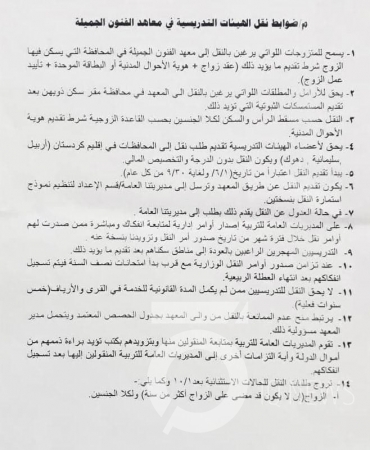 م/ ضوابط نقل الهيئات التدريسية في معاهد الفنون الجميلة
١- يسمح للمتزوجات اللواتي يرغبن بالنقل إلى معاهد الفنون الجميلة في المحافظة التي يسكن فيها
الزوج شرط تقديم ما يؤيد ذلك ( عقد زواج + هوية الأحوال المدنية أو البطاقة الموحدة + تأييد
عمل الزوج).
٢- يحق للأرامل والمطلقات اللواتي يرغبن بالنقل الى المعهد في محافظة مقر سكن ذويهن بعد
تقديم المستمسكات الثبوتية التي تؤيد ذلك.
٣- النقل حسب مسقط الرأس والسكن لكلا الجنسين بحسب القاعدة الزوجية شرط تقديم هوية
الأحوال المدنية.
٤- يحق لأعضاء الهيئات التدريسية تقديم طلب نقل إلى المحافظات في إقليم كردستان (أربيل
,سليمانية , دهوك) ويكون النقل بدون الدرجة والتخصيص المالي.
٥- يبدأ تقديم النقل اعتباراً من تاريخ (٦/١) ولغاية ٩/٣٠ من كل عام).
٦- يكون تقديم النقل عن طريق المعهد وترسل إلى مديريتنا العامة/قسم الإعداد لتنظيم نموذج
استمارة النقل بنسختين.
٧- في حالة العدول عن النقل يقدم ذلك بطلب إلى مديريتنا العامة
٨- على المديريات العامة للتربية إصدار أوامر إدارية لمتابعة انفكاك ومباشرة ممن صدرت لهم
أوامر نقل خلال فترة شهر من تاريخ صدور أمر النقل وتزويدنا بنسخة عنه .
٩- التدريسيين المهجرين الراغبين بالعودة إلى مناطق سكناهم بعد تقديم ما يؤيد ذلك.
١٠- عند تزامن صدور أوامر النقل الوزارية مع قرب بدأ امتحانات نصف السنة فيتم تسجيل
انفكاكهم بعد انتهاء العطلة الربيعية
١١- لا يحق النقل للتدريسيين ممن لم يكمل المدة القانونية للخدمة في القرى والأرياف(خمس
سنوات فعلية).
١٢- يرتبط منح عدم الممانعة بالنقل من والى المعهد بجدول الحصص المعتمد ويتحمل مدير
المعهد مسؤولية ذلك.
١٣- تقوم المديريات العامة للتربية بمتابعة المنقولين منها وبتزويدهم بكتب تؤيد براءة ذممهم من
أموال الدولة وأية التزامات أخرى إلى المديريات العامة للتربية المنقولين إليها بعد تسجيل
انفكاكهم.
١٤- تروج طلبات النقل للحالات الاستثنائية بعد ١٠/١ وكما يلي:-
أ- الزواج(إن لا يكون قد مضى على الزواج أكثر من سنة) ولكلا الجنسين.